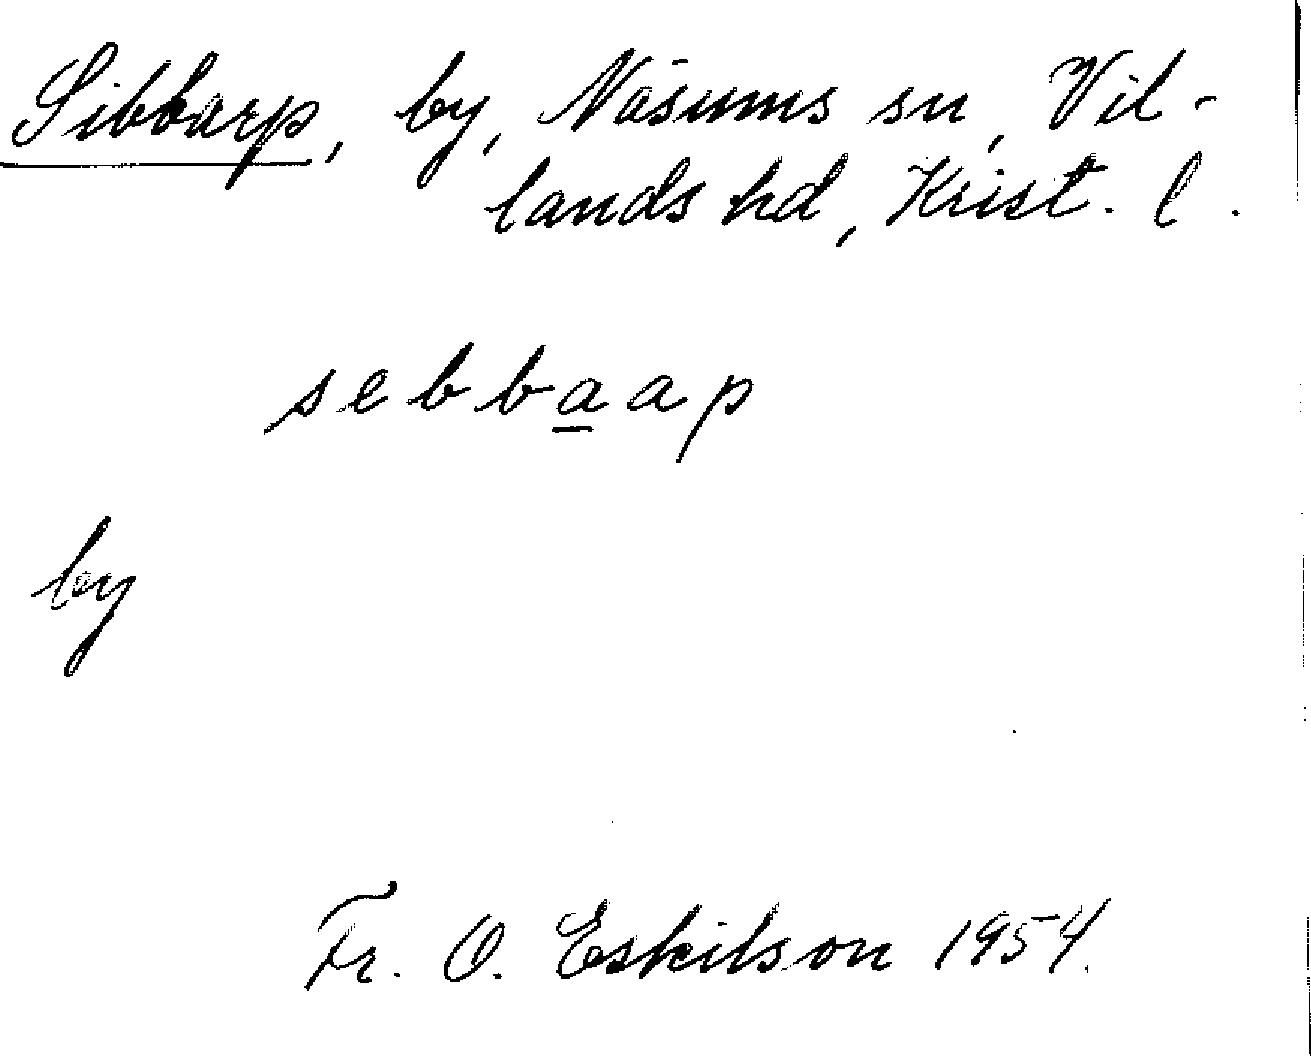 Sibbarp, by, Näsums sn, Vil-
lands hd, Krist. l.
sebba̲ap
by
Fr. O. Eskilson 1954.